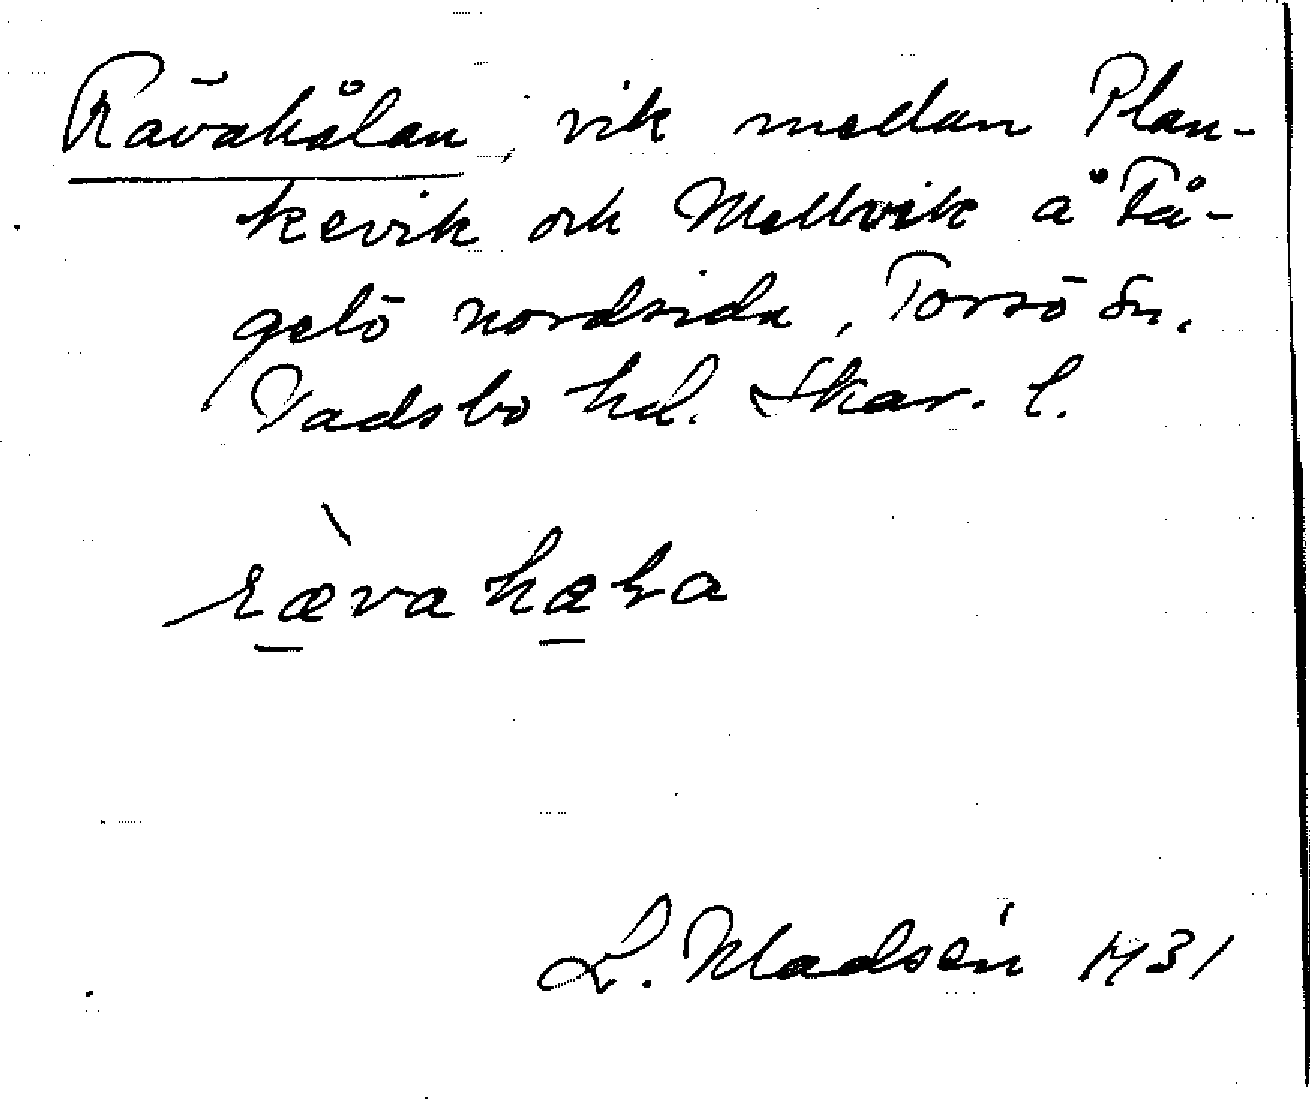 Rävahålan, vik mellan Plan-
kevik och Mellvik å Få-
gelö nordsida, Torsö sn.
Vadsbo hd. Skar. l.
rævahæƚa
L. Madsén 1931